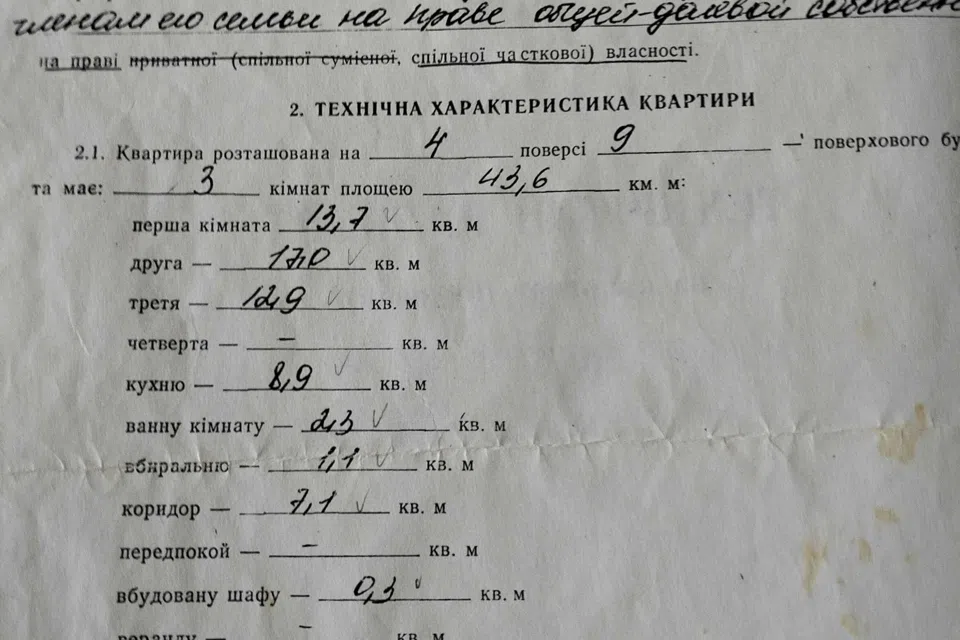 членам его семьи на праве общей-долевой собственн
на праві приватної (спільної суміеної, спільної часткової) власності.
2. ТЕХНІЧНА ХАРАКТЕРИСТИКА КВАРТИРИ
2.1. Квартира розташована на 4 поверсі 9 — поверхового бу
та має: 3 кімнат площею 43,6 км. м:
перша кімната 13,7 кв. м
друга — 17,0 кв. м
третя — 12,9 кв. м
четверта — – кв. м
кухню — 8,9 кв. м
ванну кімнату — 2,3 кв. м
вбиральню — 1,1 кв. м
коридор — 7,1 кв. м
передпокой — – кв. м
вбудовану шафу — 0,3 кв. м
веранду — – кв. м